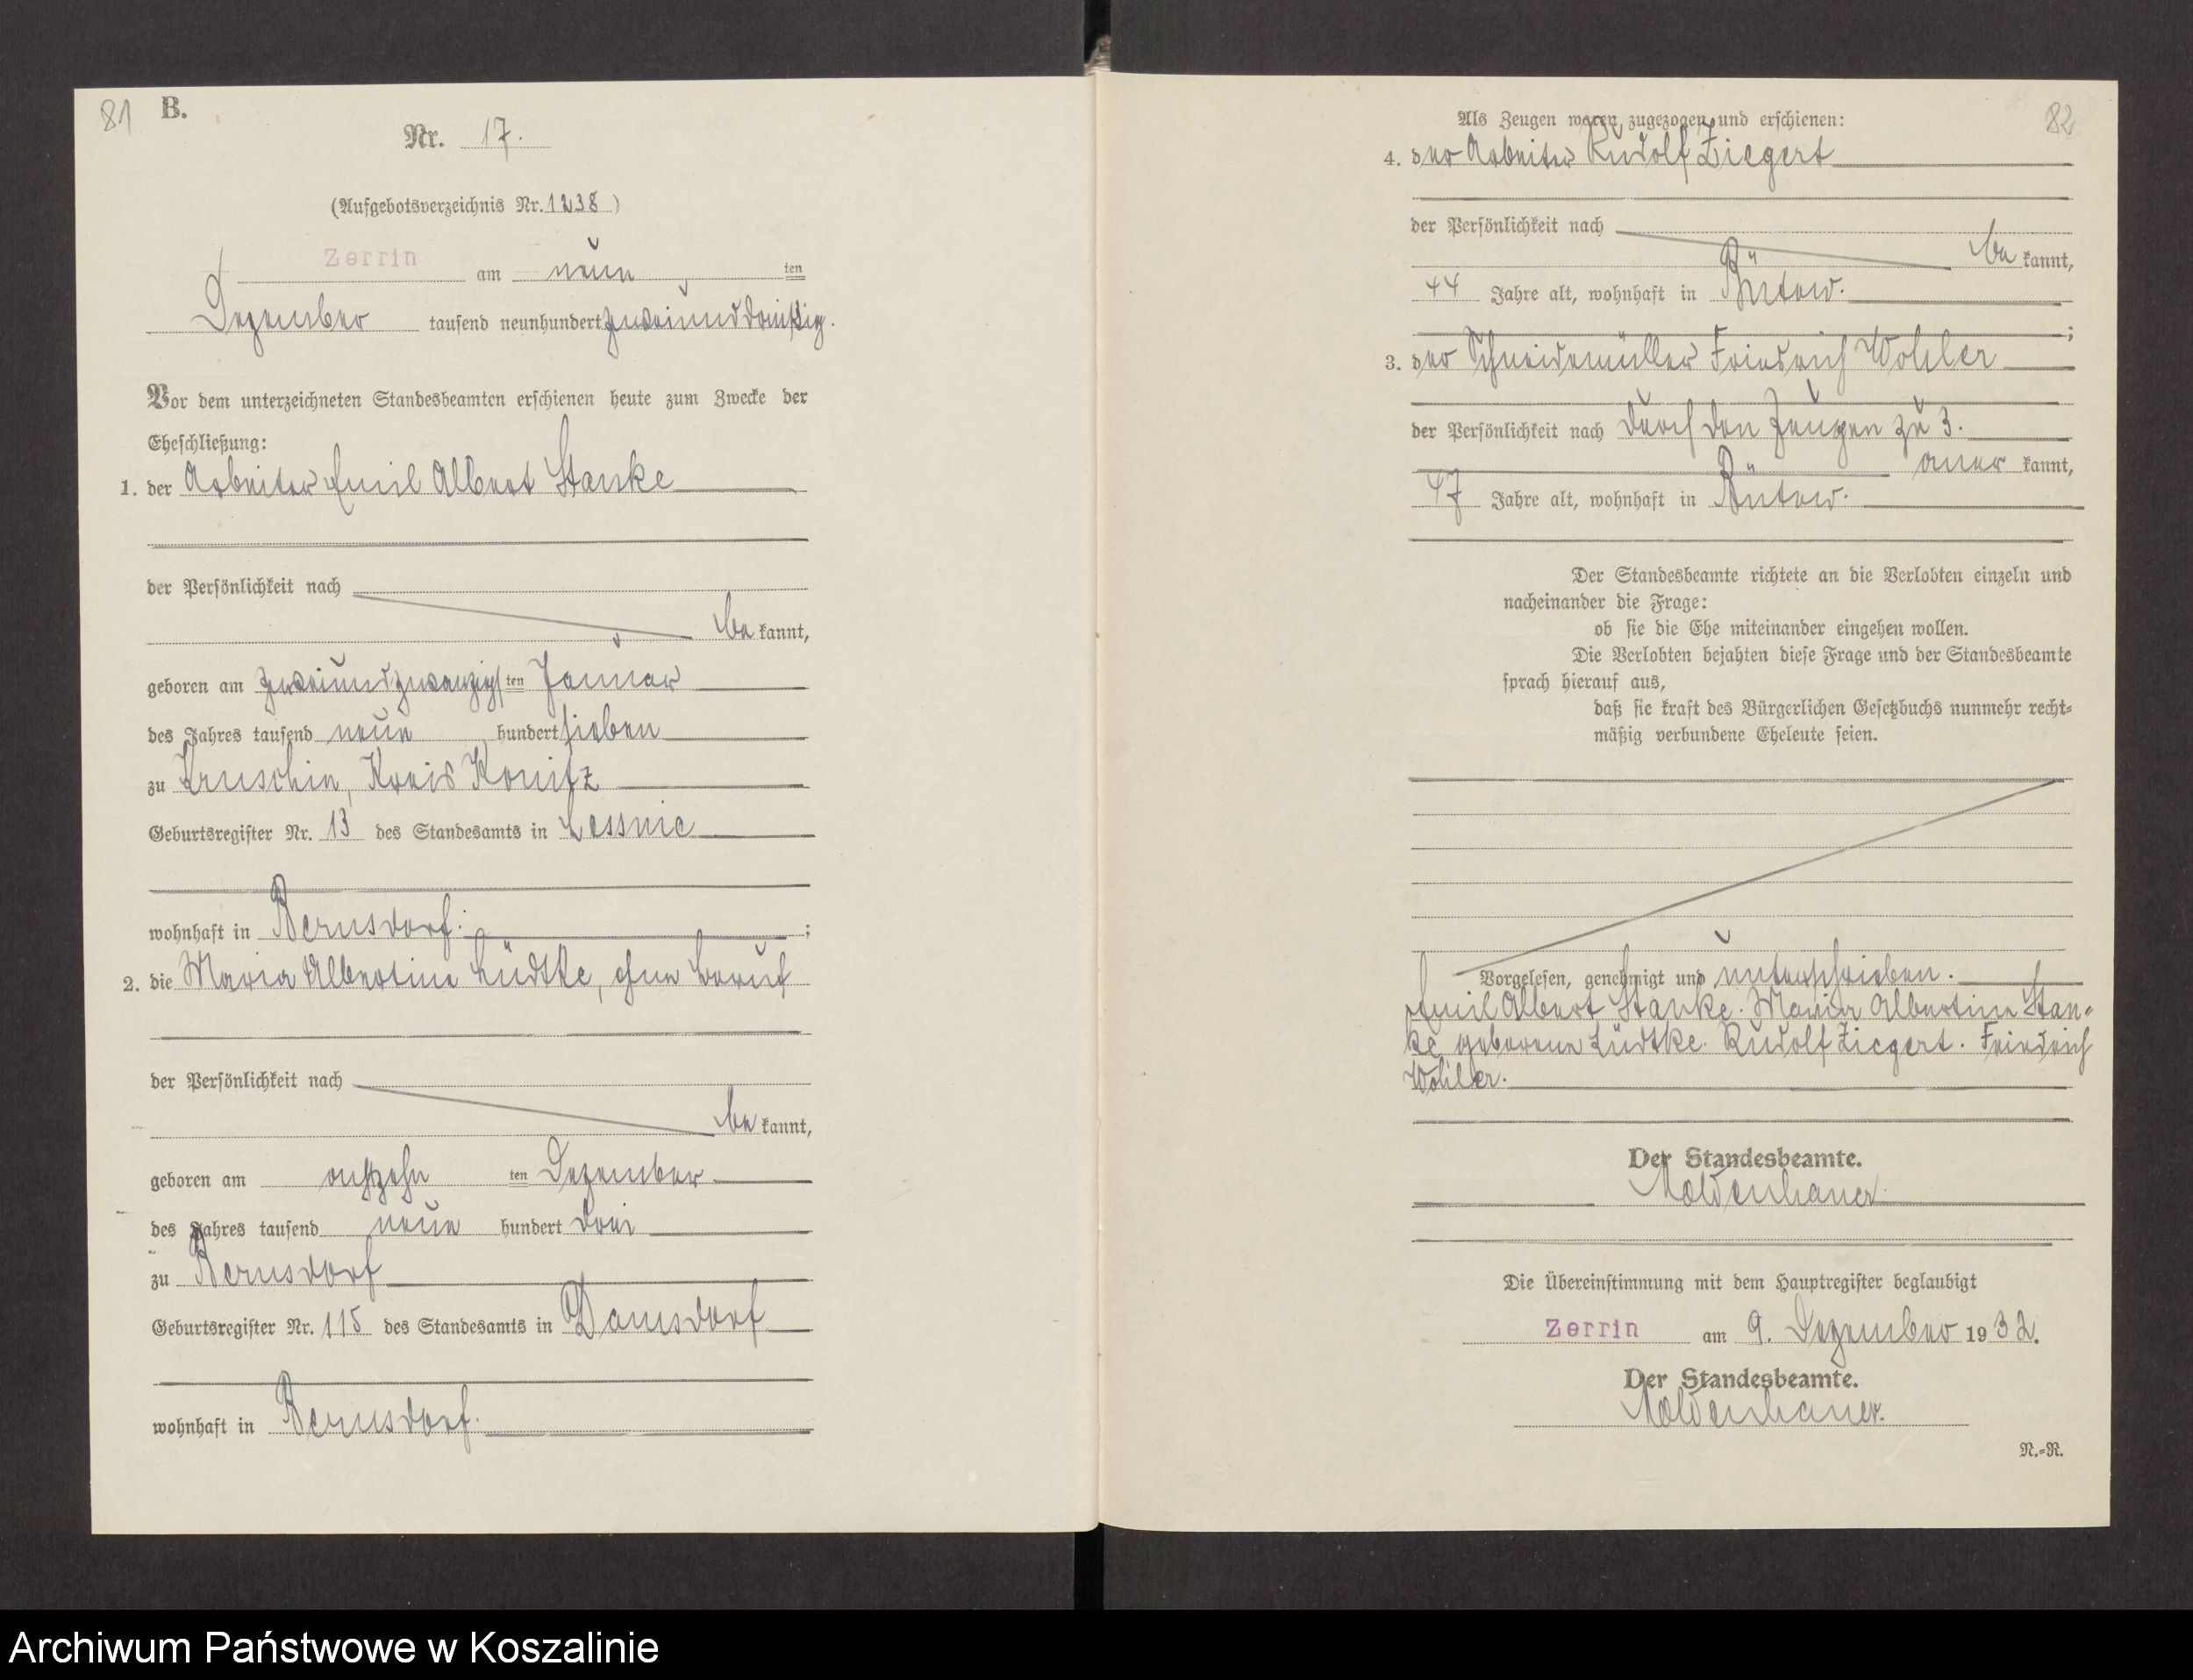 81
B.
Nr. 17.
(Aufgebotsverzeichnis Nr. 1238)
Zerrin am neun ten
Dezember tausend neunhundert zweiunddreißig.
Vor dem unterzeichneten Standesbeamten erschienen heute zum Zwecke der
Eheschließung:
1. der Arbeiter Emil Albert Stanke
der Persönlichkeit nach
be kannt,
geboren am zweiundzwanzigsten Januar
des Jahres tausend neun hundert sieben
zu Kruschin, Kreis Konitz
Geburtsregister Nr. 13 des Standesamts in Lessnie
wohnhaft in Bernsdorf. ;
2. die Maria Albertine Lüdtke, ohne Beruf
der Persönlichkeit nach
be kannt,
geboren am achtzehn ten Dezember
des Jahres tausend neun hundert drei
zu Bernsdorf
Geburtsregister Nr. 115 des Standesamts in Damsdorf
wohnhaft in Bernsdorf.
82
Als Zeugen waren zugezogen und erschienen:
4. der Arbeiter Rudolf Ziegert
der Persönlichkeit nach
be kannt,
44 Jahre alt, wohnhaft in Bütow.
;
3. der Schneidemüller Friedrich Wohler
der Persönlichkeit nach durch den Zeugen zu 3.
aner kannt,
47 Jahre alt, wohnhaft in Bütow.
Der Standesbeamte richtete an die Verlobten einzeln und
nacheinander die Frage:
ob sie die Ehe miteinander eingehen wollen.
Die Verlobten bejahten diese Frage und der Standesbeamte
sprach hierauf aus,
daß sie kraft des Bürgerlichen Gesetzbuchs nunmehr recht-
mäßig verbundene Eheleute seien.
Vorgelesen, genehmigt und unterschrieben.
Emil Albert Stanke. Maria Albertine Stan-
ke geborene Lüdtke. Rudolf Ziegert. Friedrich
Wohler.
Der Standesbeamte.
Moldenhauer.
Die Übereinstimmung mit dem Hauptregister beglaubigt
Zerrin am 9. Dezember 1932.
Der Standesbeamte.
Moldenhauer.
N.-R.
Archiwum Państwowe w Koszalinie